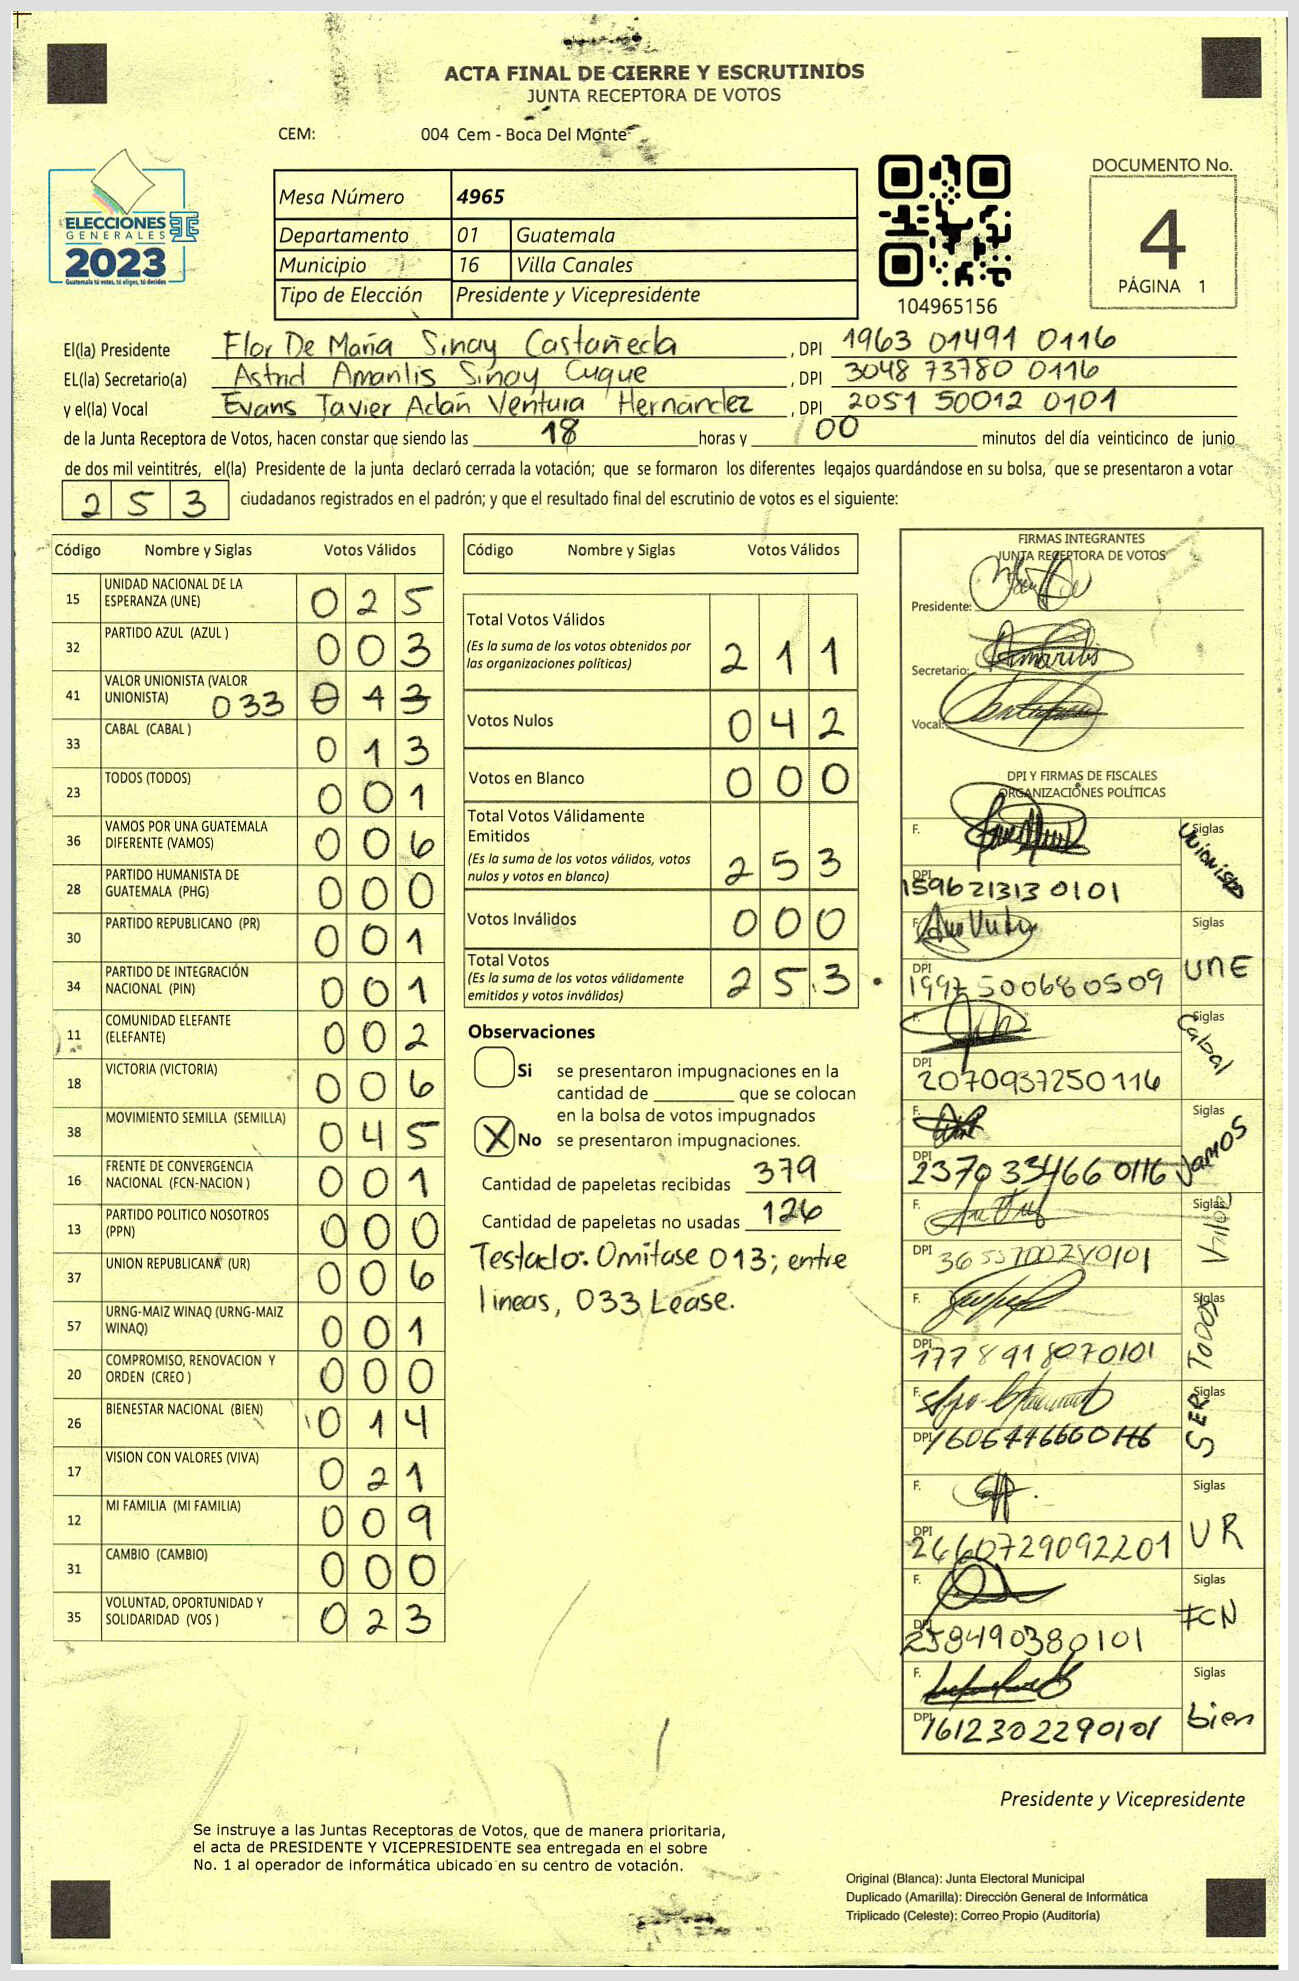 ACTA FINAL DE CIERRE Y ESCRUTINIOS
JUNTA RECEPTORA DE VOTOS
CEM: 004 Cem - Boca Del Monte
ELECCIONES
GENERALES
2023
Guatemala tú votas, tú eliges, tú decides
Mesa Número 4965
Departamento 01 Guatemala
Municipio 16 Villa Canales
Tipo de Elección Presidente y Vicepresidente
104965156
DOCUMENTO No.
4
PÁGINA 1
El(la) Presidente Flor De María Sinay Castañeda , DPI 1963 01491 0116
EL(la) Secretario(a) Astrid Amarilis Sinay Cuque , DPI 3048 73780 0116
y el(la) Vocal Evans Javier Adán Ventura Hernández , DPI 2051 50012 0101
de la Junta Receptora de Votos, hacen constar que siendo las 18 horas y 00 minutos del día veinticinco de junio
de dos mil veintitrés, el(la) Presidente de la junta declaró cerrada la votación; que se formaron los diferentes legajos guardándose en su bolsa, que se presentaron a votar
253 ciudadanos registrados en el padrón; y que el resultado final del escrutinio de votos es el siguiente:
Código Nombre y Siglas Votos Válidos
15 UNIDAD NACIONAL DE LA ESPERANZA (UNE) 025
32 PARTIDO AZUL (AZUL ) 003
41 VALOR UNIONISTA (VALOR UNIONISTA) 033 013
33 CABAL (CABAL ) 013
23 TODOS (TODOS) 001
36 VAMOS POR UNA GUATEMALA DIFERENTE (VAMOS) 006
28 PARTIDO HUMANISTA DE GUATEMALA (PHG) 000
30 PARTIDO REPUBLICANO (PR) 001
34 PARTIDO DE INTEGRACIÓN NACIONAL (PIN) 001
11 COMUNIDAD ELEFANTE (ELEFANTE) 002
18 VICTORIA (VICTORIA) 006
38 MOVIMIENTO SEMILLA (SEMILLA) 045
16 FRENTE DE CONVERGENCIA NACIONAL (FCN-NACION ) 001
13 PARTIDO POLITICO NOSOTROS (PPN) 000
37 UNION REPUBLICANA (UR) 006
57 URNG-MAIZ WINAQ (URNG-MAIZ WINAQ) 001
20 COMPROMISO, RENOVACION Y ORDEN (CREO ) 000
26 BIENESTAR NACIONAL (BIEN) 014
17 VISION CON VALORES (VIVA) 021
12 MI FAMILIA (MI FAMILIA) 009
31 CAMBIO (CAMBIO) 000
35 VOLUNTAD, OPORTUNIDAD Y SOLIDARIDAD (VOS ) 023
Código Nombre y Siglas Votos Válidos
Total Votos Válidos
(Es la suma de los votos obtenidos por
las organizaciones políticas) 211
Votos Nulos 042
Votos en Blanco 000
Total Votos Válidamente
Emitidos
(Es la suma de los votos válidos, votos
nulos y votos en blanco) 253
Votos Inválidos 000
Total Votos
(Es la suma de los votos válidamente
emitidos y votos inválidos) 253
Observaciones
Si se presentaron impugnaciones en la
cantidad de ________ que se colocan
en la bolsa de votos impugnados
X No se presentaron impugnaciones.
Cantidad de papeletas recibidas 379
Cantidad de papeletas no usadas 126
Testado: Omitase 013; entre
lineas, 033 Lease.
FIRMAS INTEGRANTES
JUNTA RECEPTORA DE VOTOS
Presidente:
Secretario: Amarilis
Vocal:
DPI Y FIRMAS DE FISCALES
ORGANIZACIONES POLÍTICAS
F. Siglas Unionista
DPI 1596213130101
F. Siglas UNE
DPI 1997500680509
F. Siglas Cabal
DPI 2070937250116
F. Siglas Vamos
DPI 2370334660116
F. Siglas Valor
DPI
F. Siglas TODOS
DPI 1778918070101
F. Siglas SER
DPI 1606446660116
F. Siglas UR
DPI 2660729092201
F. Siglas FCN
DPI 258490380101
F. Siglas bien
DPI 1612302290101
Presidente y Vicepresidente
Se instruye a las Juntas Receptoras de Votos, que de manera prioritaria,
el acta de PRESIDENTE Y VICEPRESIDENTE sea entregada en el sobre
No. 1 al operador de informática ubicado en su centro de votación.
Original (Blanca): Junta Electoral Municipal
Duplicado (Amarilla): Dirección General de Informática
Triplicado (Celeste): Correo Propio (Auditoría)